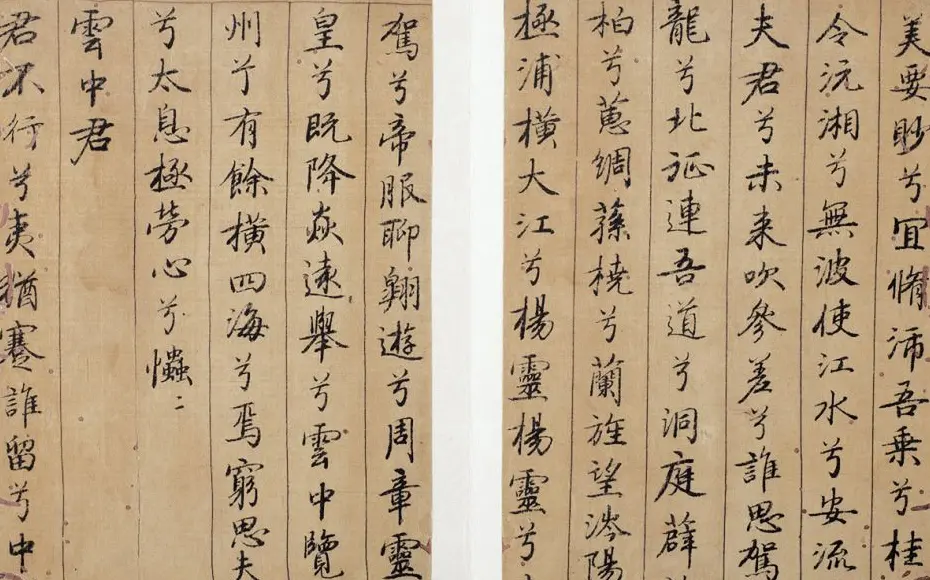 駕兮帝服聊翱遊兮周章靈
皇兮既降焱遠舉兮雲中覽
州兮有餘橫四海兮焉窮思夫
兮太息極勞心兮𢥞〻
雲中君
君不行兮夷猶蹇誰留兮中
美要眇兮宜脩沛吾乘兮桂
令沅湘兮無波使江水兮安流
夫君兮未来吹參差兮誰思駕
龍兮北征連吾道兮洞庭薜
柏兮蕙綢蓀橈兮蘭旌望涔陽
極浦橫大江兮楊靈楊靈兮